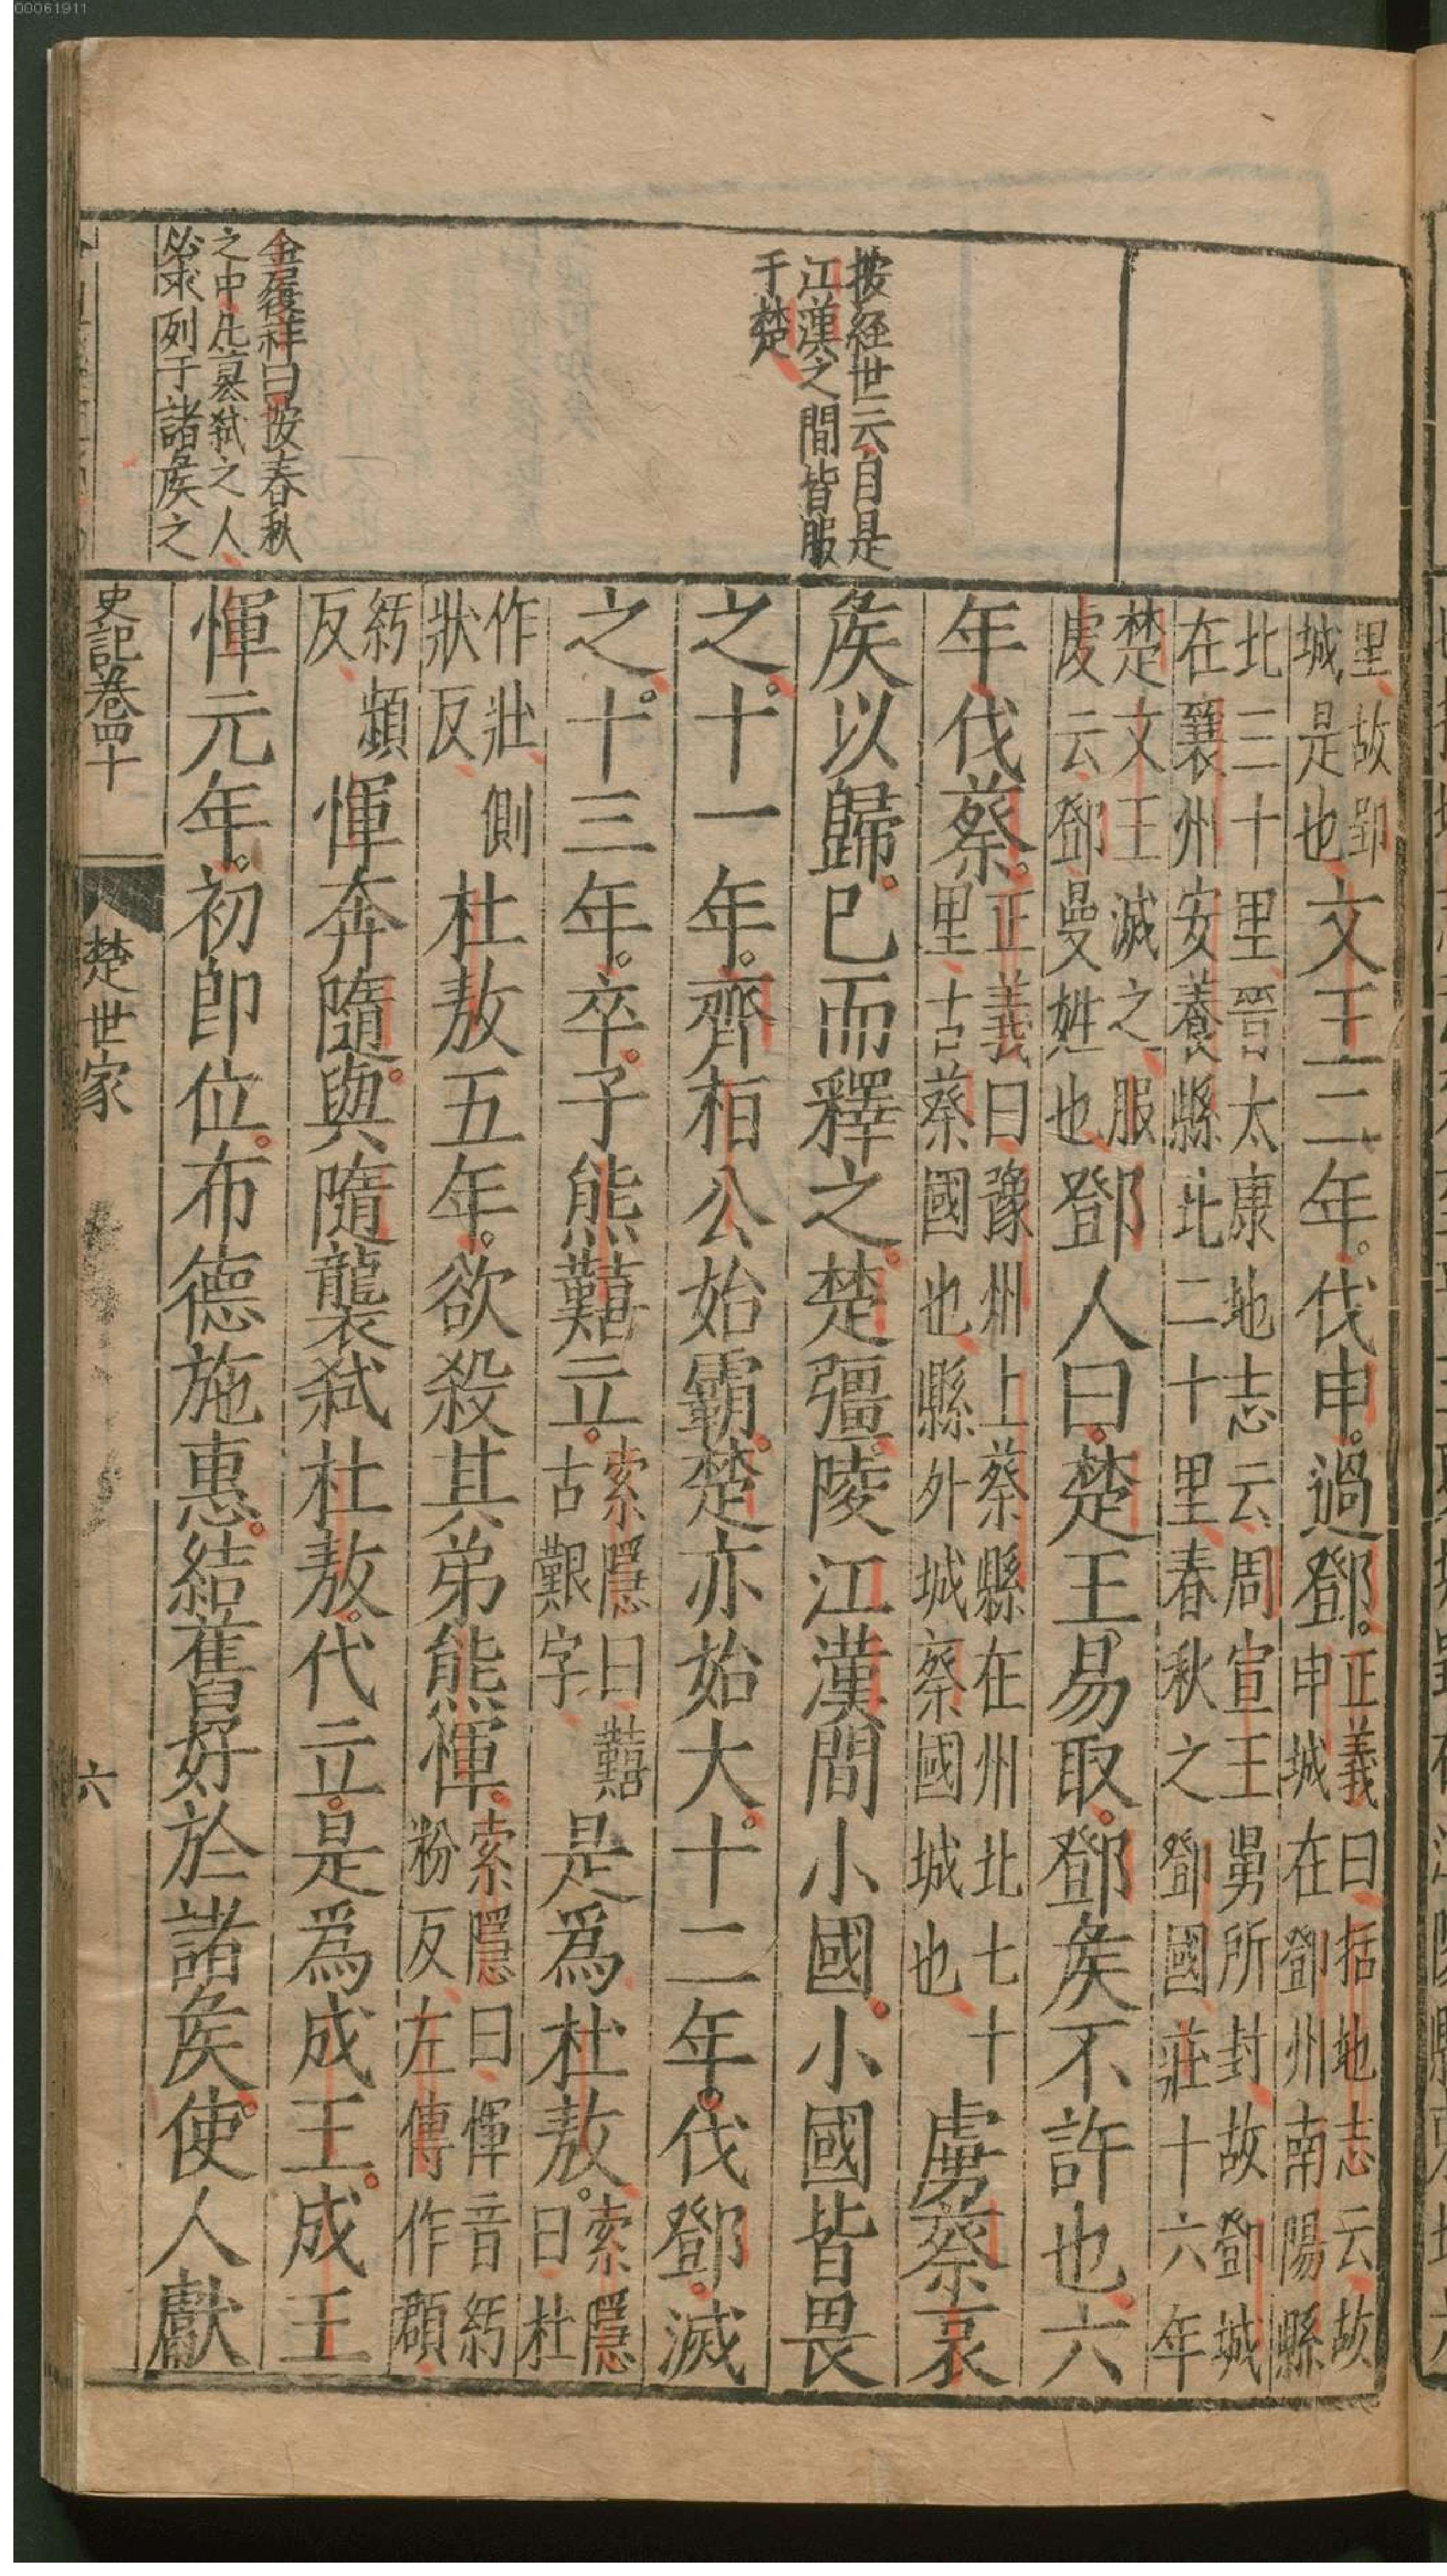 00061911
按経世云自是
江漢之間皆服
于楚
金履祥曰按春秋
之中凡簒弑之人
必求列于諸矦之
里故郢
城是也
文王二年伐申過鄧
正義曰括地志云故
申城在鄧州南陽縣
北三十里晉太康地志云周宣王舅所封故鄧城
在襄州安養縣北二十里春秋之鄧國莊十六年
楚文王滅之服
虔云鄧曼姓也
鄧人曰楚王易取鄧矦不許也六
年伐蔡
正義曰豫州上蔡縣在州北七十
里古蔡國也縣外城蔡國城也
虜蔡哀
矦以歸已而釋之楚彊陵江漢間小國小國皆畏
之十一年齊桓公始霸楚亦始大十二年伐鄧滅
之十三年卒子熊囏立
索隱曰囏
古艱字
是爲杜敖
索隱
曰杜
作壯側
狀反
杜敖五年欲殺其弟熊惲
索隱曰惲音紆
粉反左傳作頵
紆頻
反
惲奔隨與隨襲弑杜敖代立是爲成王成王
惲元年初即位布德施惠結舊好於諸矦使人獻
史記卷四十
楚世家
六